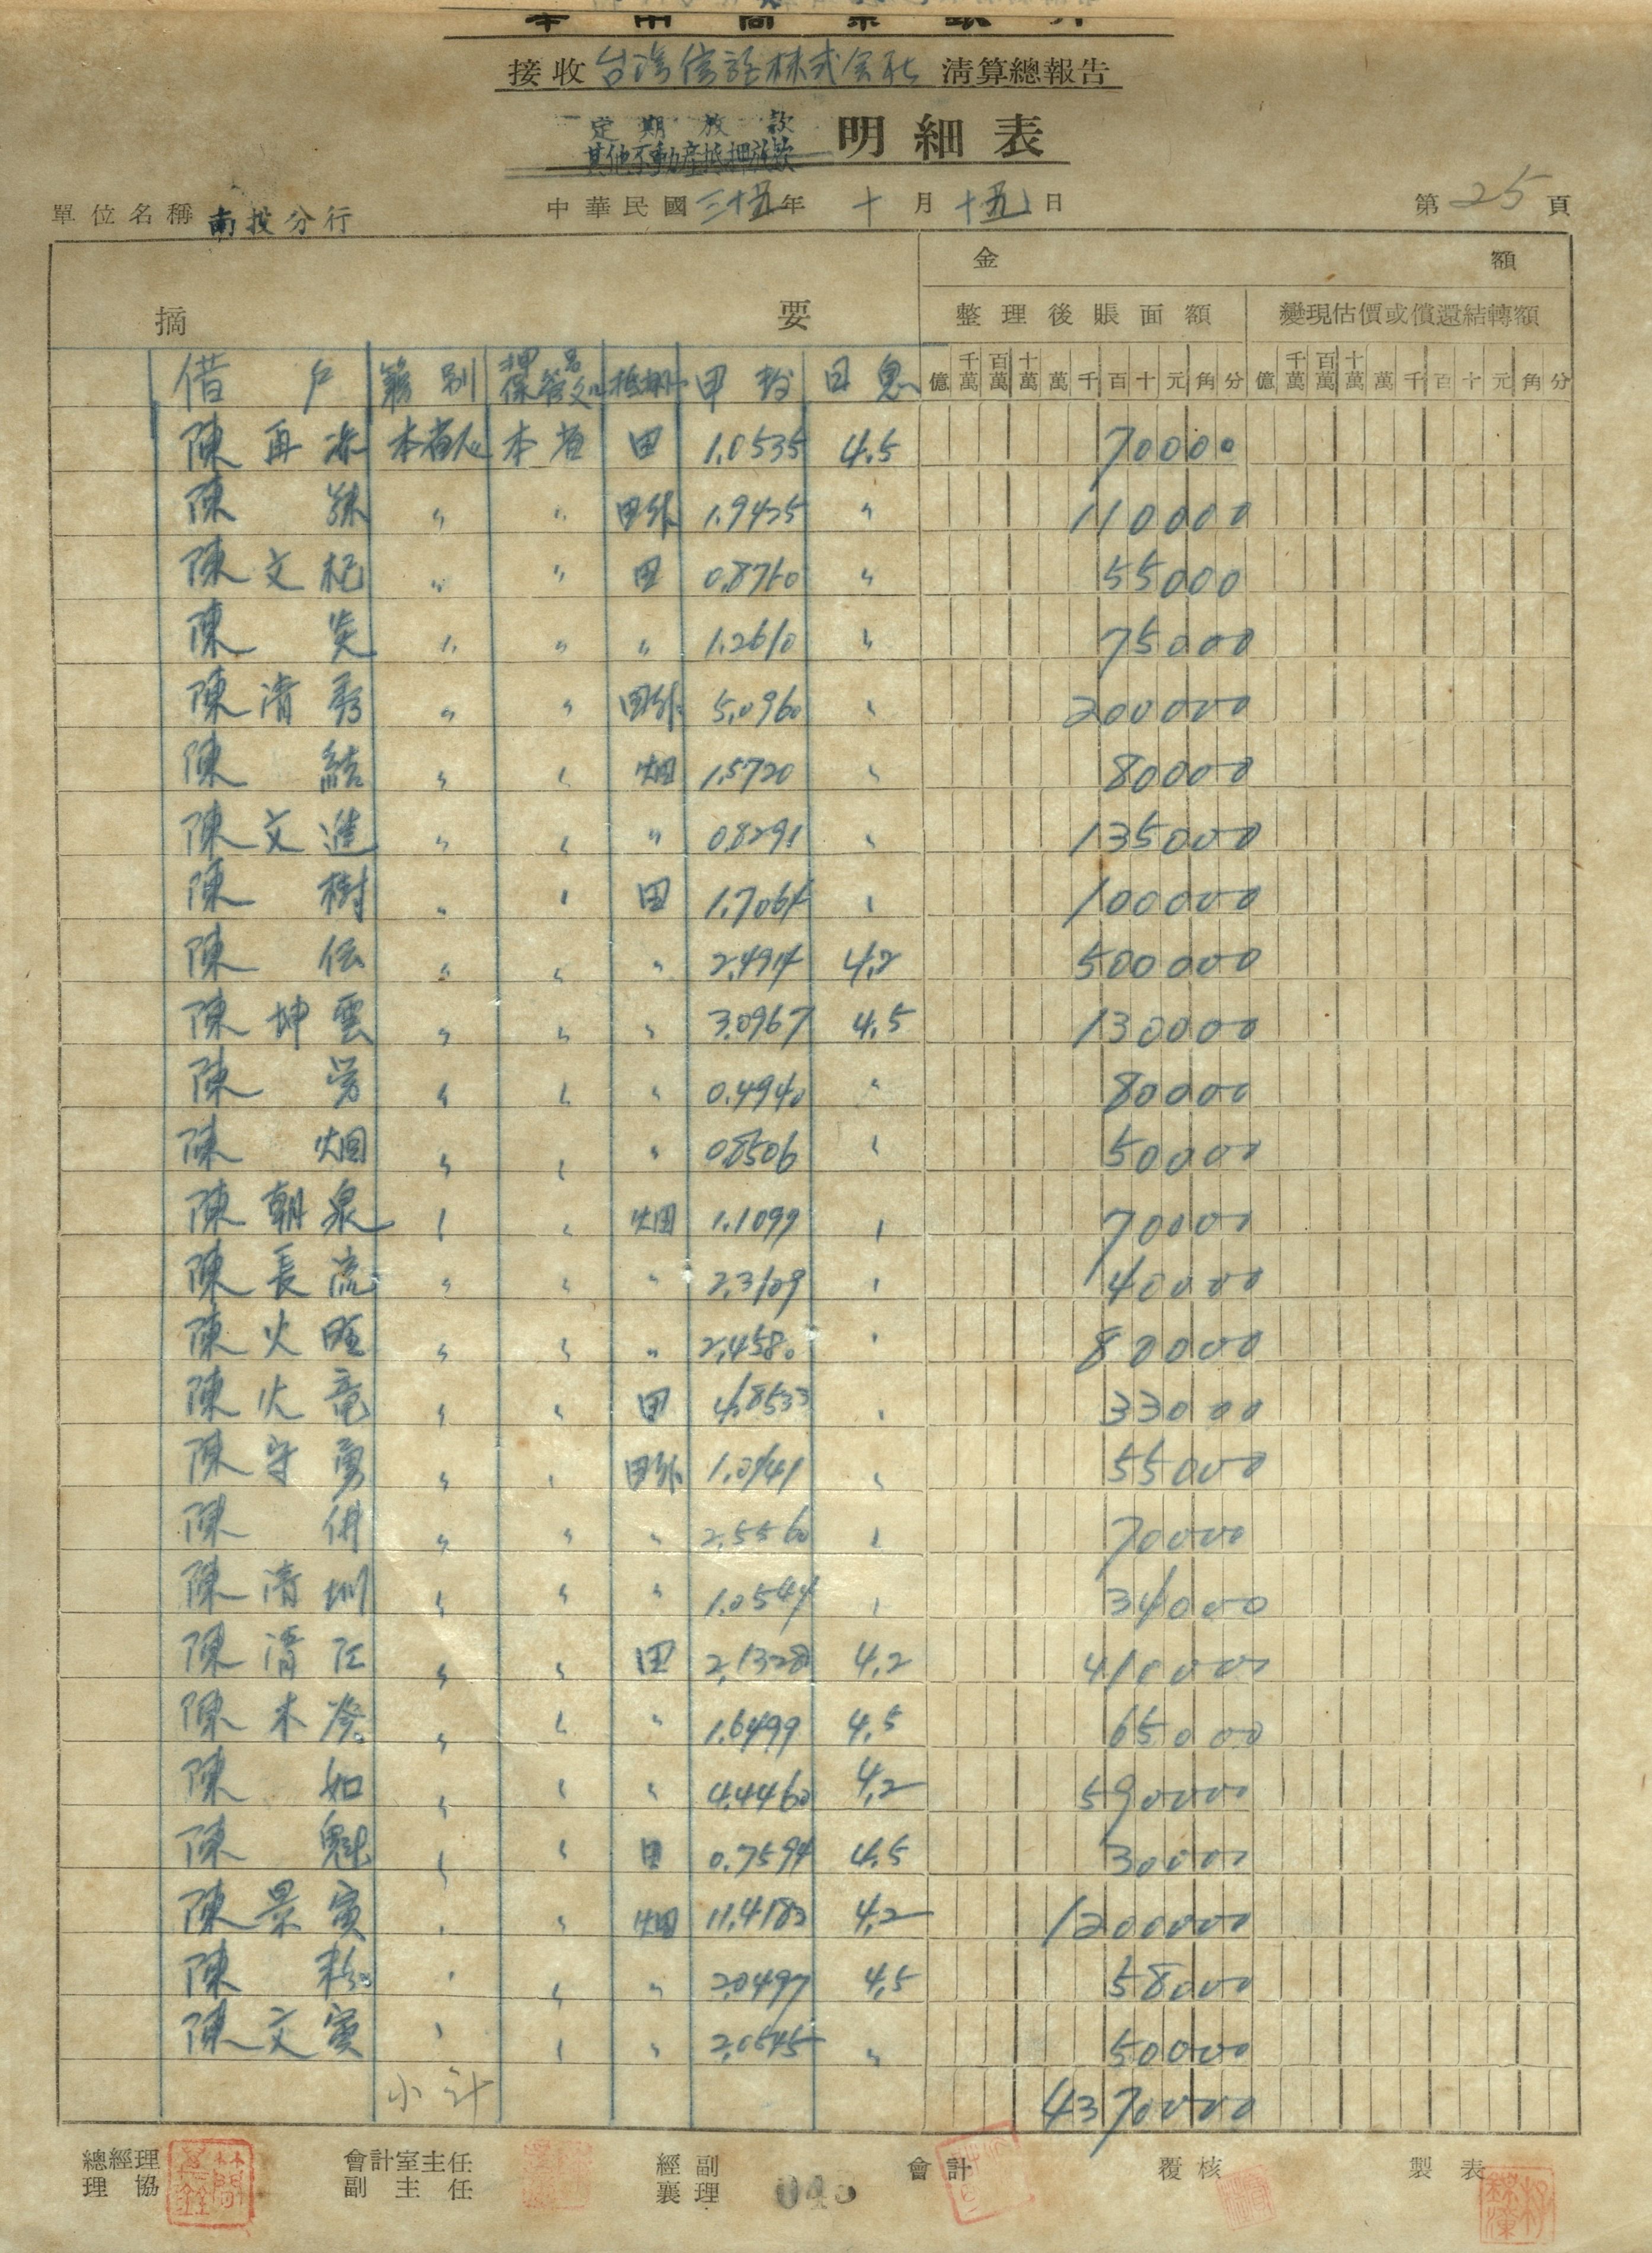 接收台湾信託株式会社清算總報告
定期放款
其他不動產抵押放款
明細表
單位名稱 南投分行 中華民國三十五年十月十五日 第25頁
金額
摘要 整理後賬面額 變現估價或償還結轉額
借戶 籍別 抵押 甲数 日息 億 千萬 百萬 十萬 萬 千 百 十 元 角 分 億 千萬 百萬 十萬 萬 千 百 十 元 角 分
陳再 本省人 本省 田 1.0535 4.5 70000
陳 〃 〃 田外 1.9425 〃 110000
陳文杞 〃 〃 田 0.8760 〃 55000
陳炎 〃 〃 〃 1.2610 〃 75000
陳清秀 〃 〃 田外 5.0960 〃 200000
陳結 〃 〃 畑 1.5720 〃 80000
陳文進 〃 〃 〃 0.8291 〃 135000
陳樹 〃 〃 田 1.7064 〃 100000
陳伝 〃 〃 〃 2.4914 4.2 500000
陳坤雲 〃 〃 〃 3.0967 4.5 130000
陳 〃 〃 〃 0.4940 〃 80000
陳烟 〃 〃 〃 0.8506 〃 50000
陳朝泉 〃 〃 畑 1.1099 〃 70000
陳長流 〃 〃 〃 2.3109 〃 40000
陳火旺 〃 〃 〃 2.4580 〃 80000
陳火竜 〃 〃 田 4.8533 〃 33000
陳守勇 〃 〃 田外 1.0141 〃 55000
陳 〃 〃 〃 2.5560 〃 70000
陳清圳 〃 〃 〃 1.0544 〃 34000
陳清 〃 〃 田 2.1328 4.2 410000
陳木 〃 〃 〃 1.6499 4.5 65000
陳如 〃 〃 〃 4.4460 4.2 590000
陳魁 〃 〃 田 0.7594 4.5 30000
陳景寅 〃 〃 畑 11.4183 4.2 1200000
陳 〃 〃 〃 2.0497 4.5 58000
陳文寅 〃 〃 〃 2.0545 〃 50000
小計 4370000
總經理 會計室主任 經副 會計 覆核 製表
理協 副主任 襄理